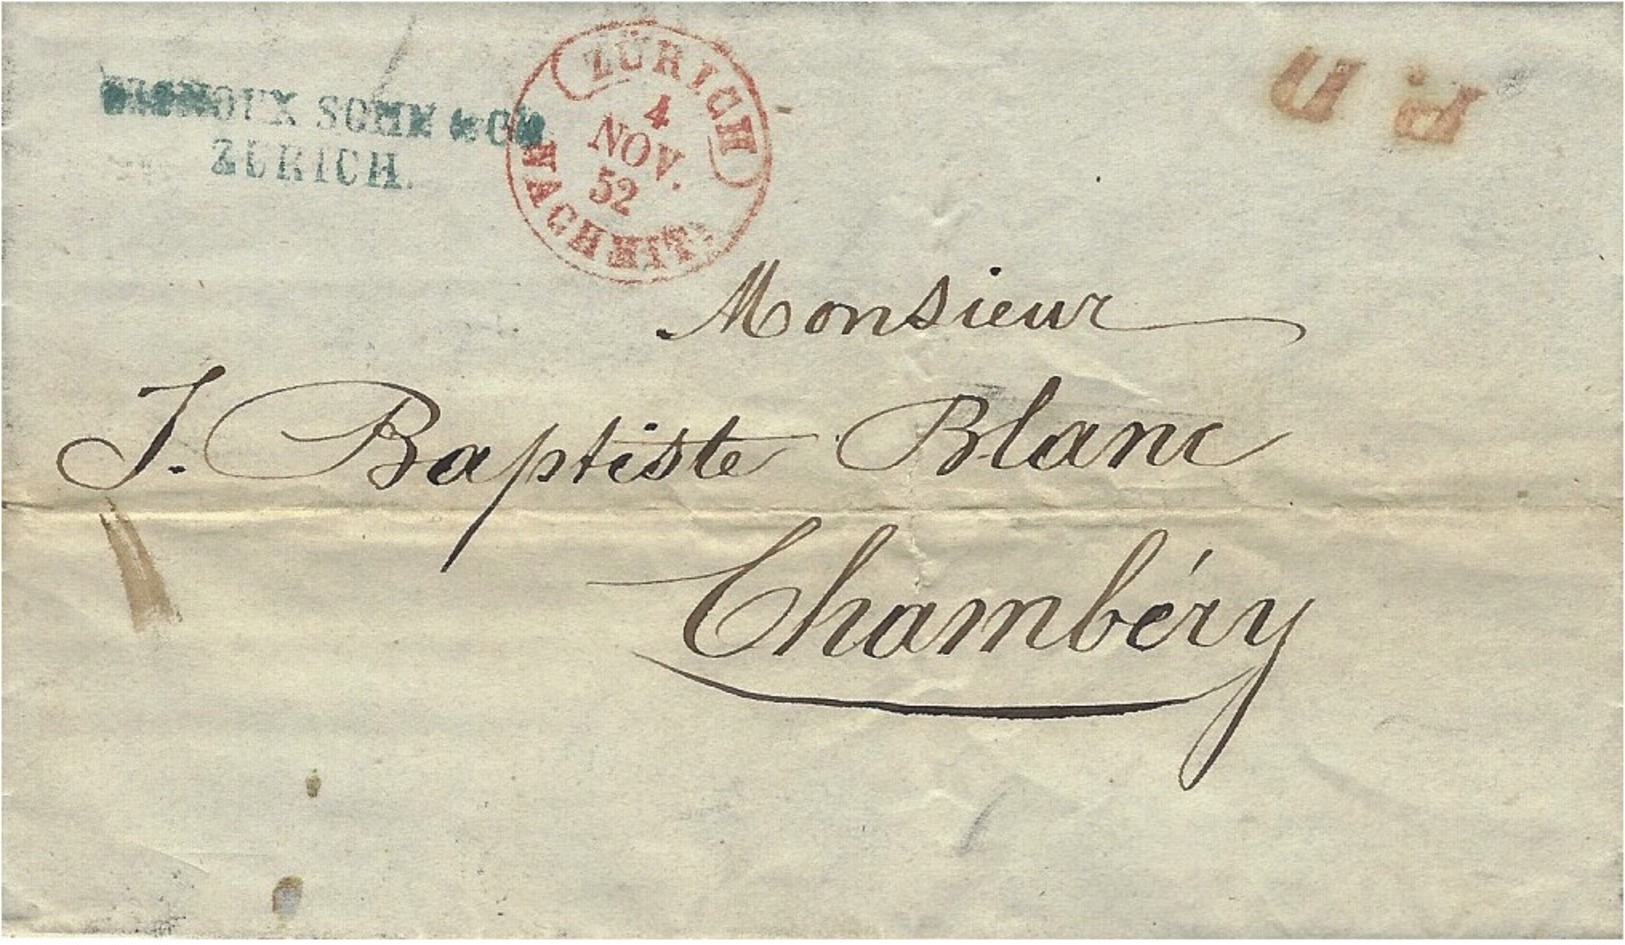 SOHN & Co
ZÜRICH.
ZÜRICH
4
NOV.
52
NACHMIT:
P. D.
Monsieur
J. Baptiste Blanc
Chambéry